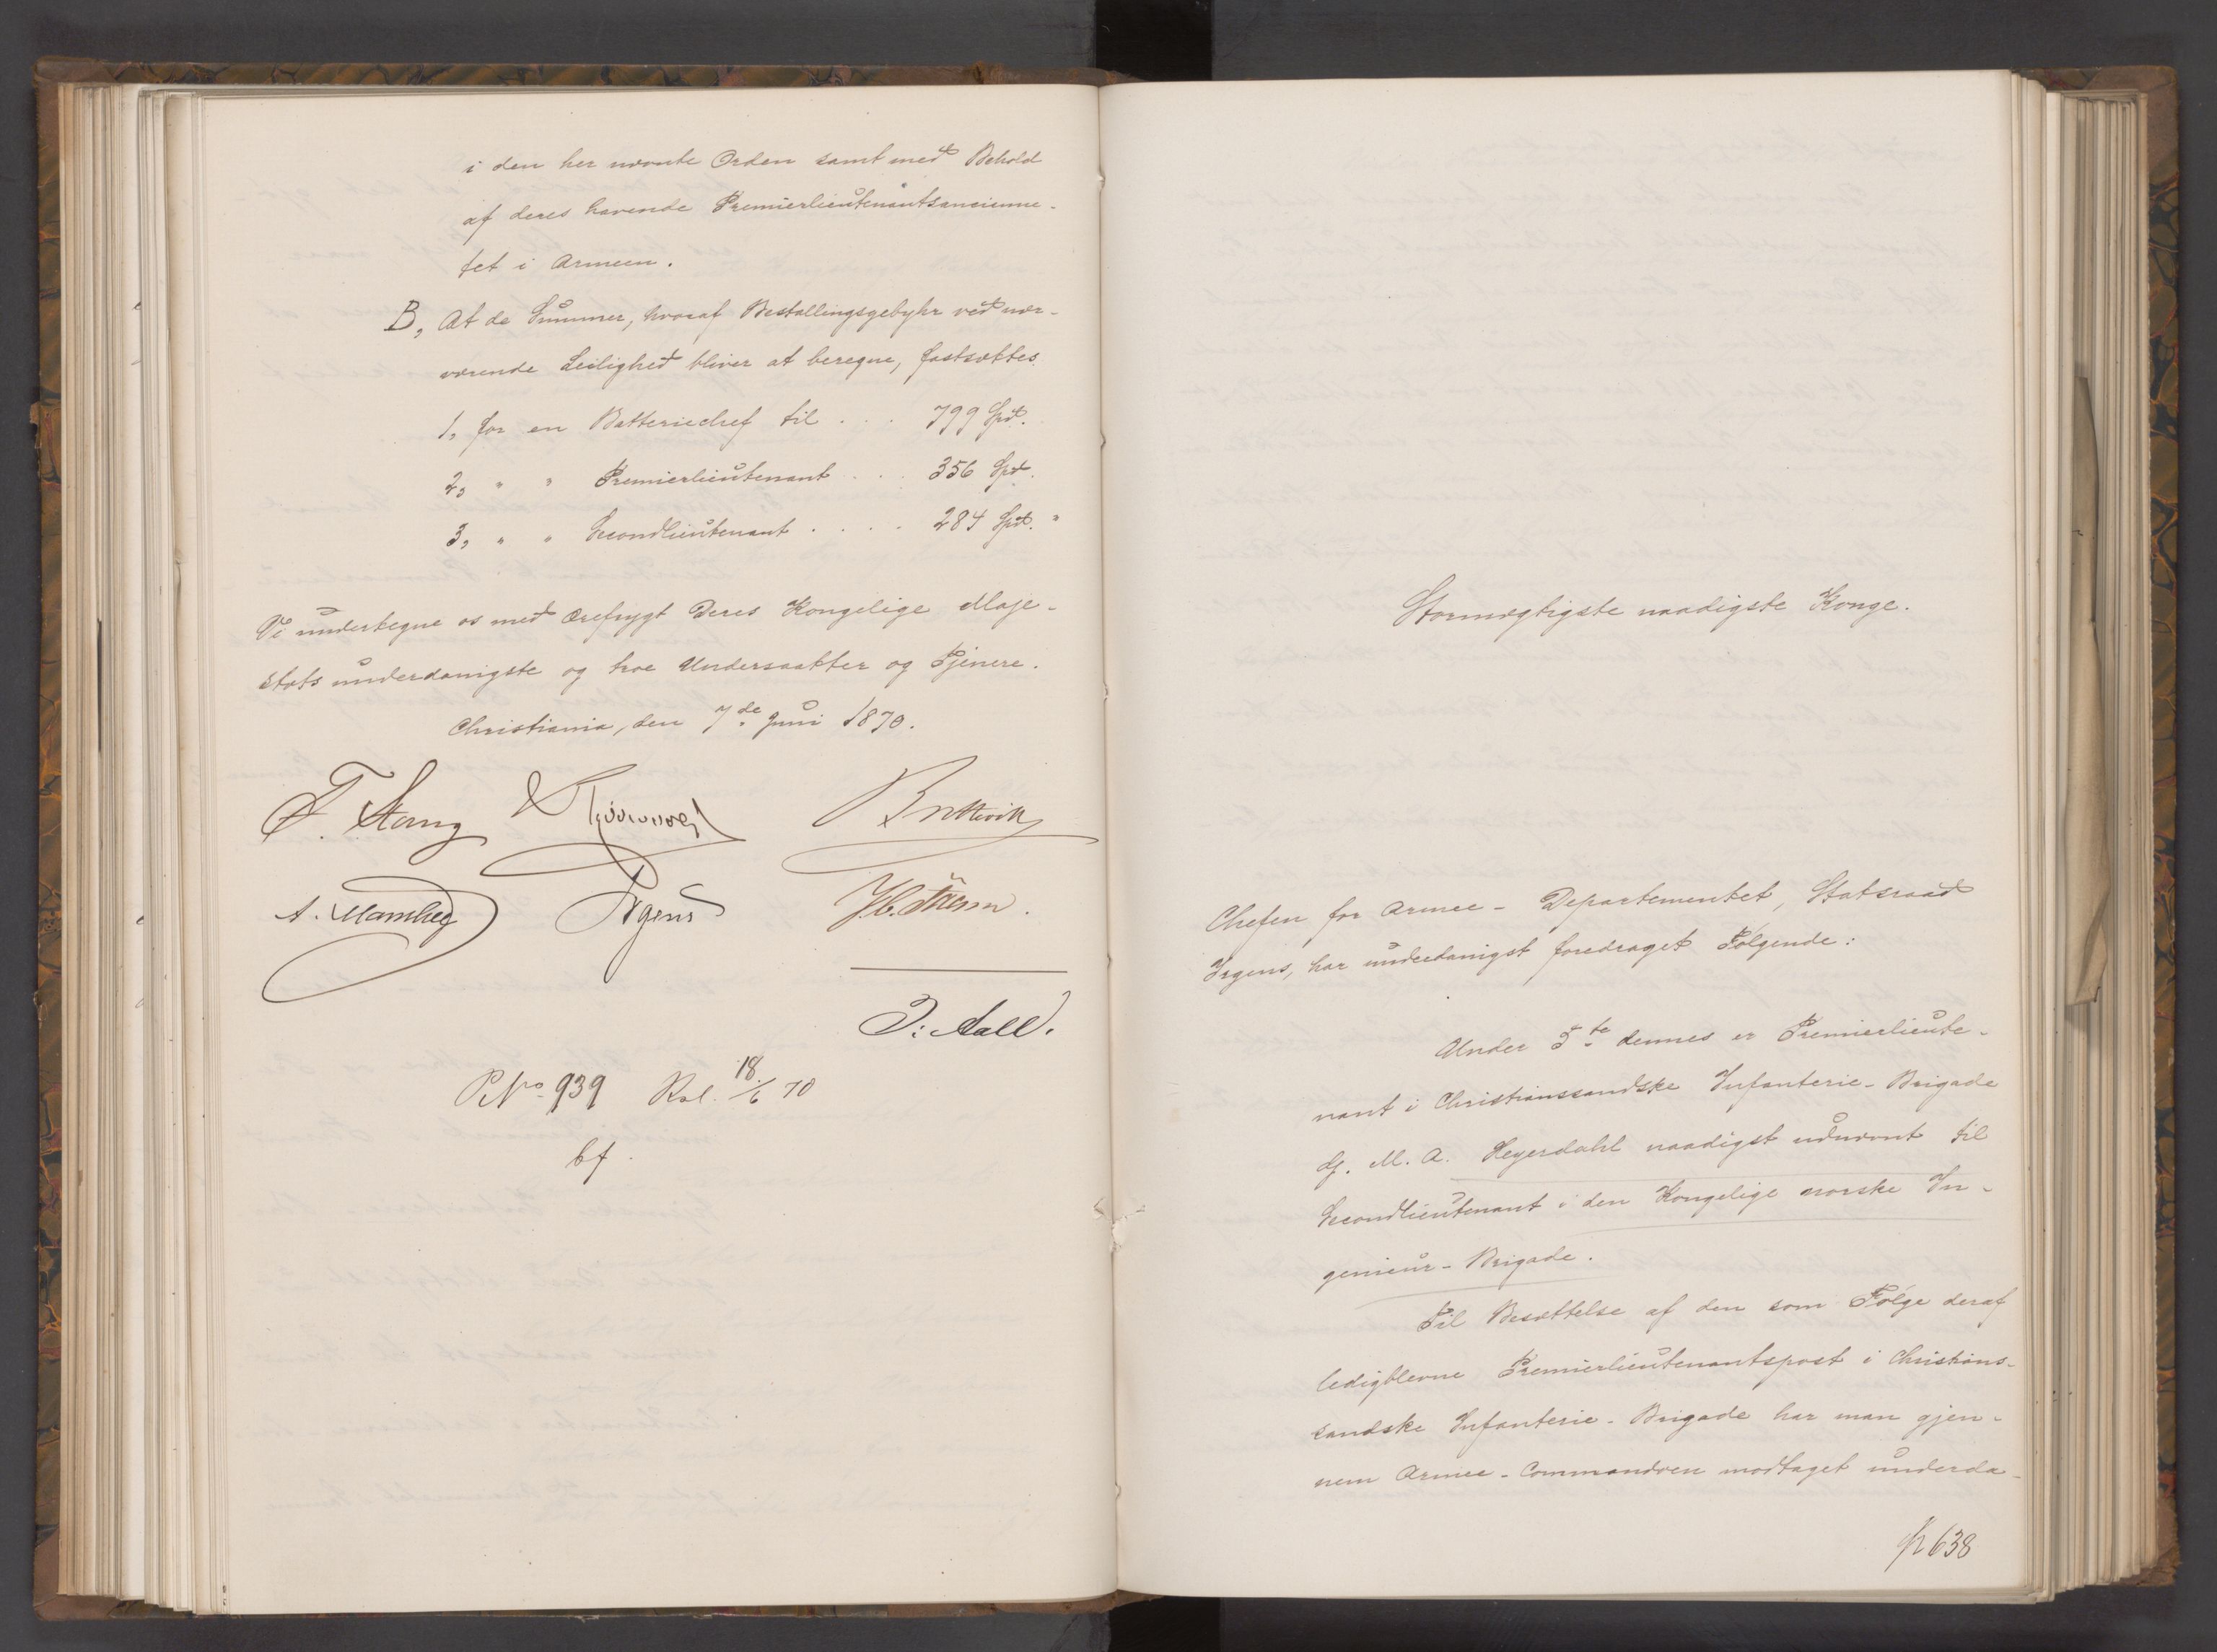 i den her nævnte Orden samt med Behold
af deres havende Premierlieutenantsancienne-
tet i Armeen.
B, At de Summer, hvoraf Bestallingsgebyhr ved nær-
værende Leilighed bliver at beregne, fastsættes
1, for en Batteriechef til . . . 799 Spd.
2, " " Premierlieutenant . . . 356 Spd.
3, " " Secondlieutenant . . . . 284 Spd. "
Vi undertegne os med Ærefrygt Deres Kongelige Maje-
stæts underdanigste og troe Undersaatter og Tjenere.
Christiania, den 7de Juni 1870.
F. Stang
Bretteville
A. Manthey Irgens J.C. Falsen.
J. Aall.
P.No 939 Rsl. 18/6 70
bf.
Stormægtigste naadigste Konge.
Chefen for Armee-Departementet, Statsraad
Irgens, har underdanigst foredraget Følgende:
Under 5te dennes er Premierlieute-
nant i Christianssandske Infanterie-Brigade
Hj. M. A. Heyerdahl naadigst udnævnt til
Secondlieutenant i den Kongelige norske In-
genieur-Brigade.
Til Besættelse af den som Følge deraf
ledigblevne Premierlieutenantspost i Christians-
sandske Infanterie-Brigade har man gjen-
nem Armee-Commandoen modtaget underda-
638